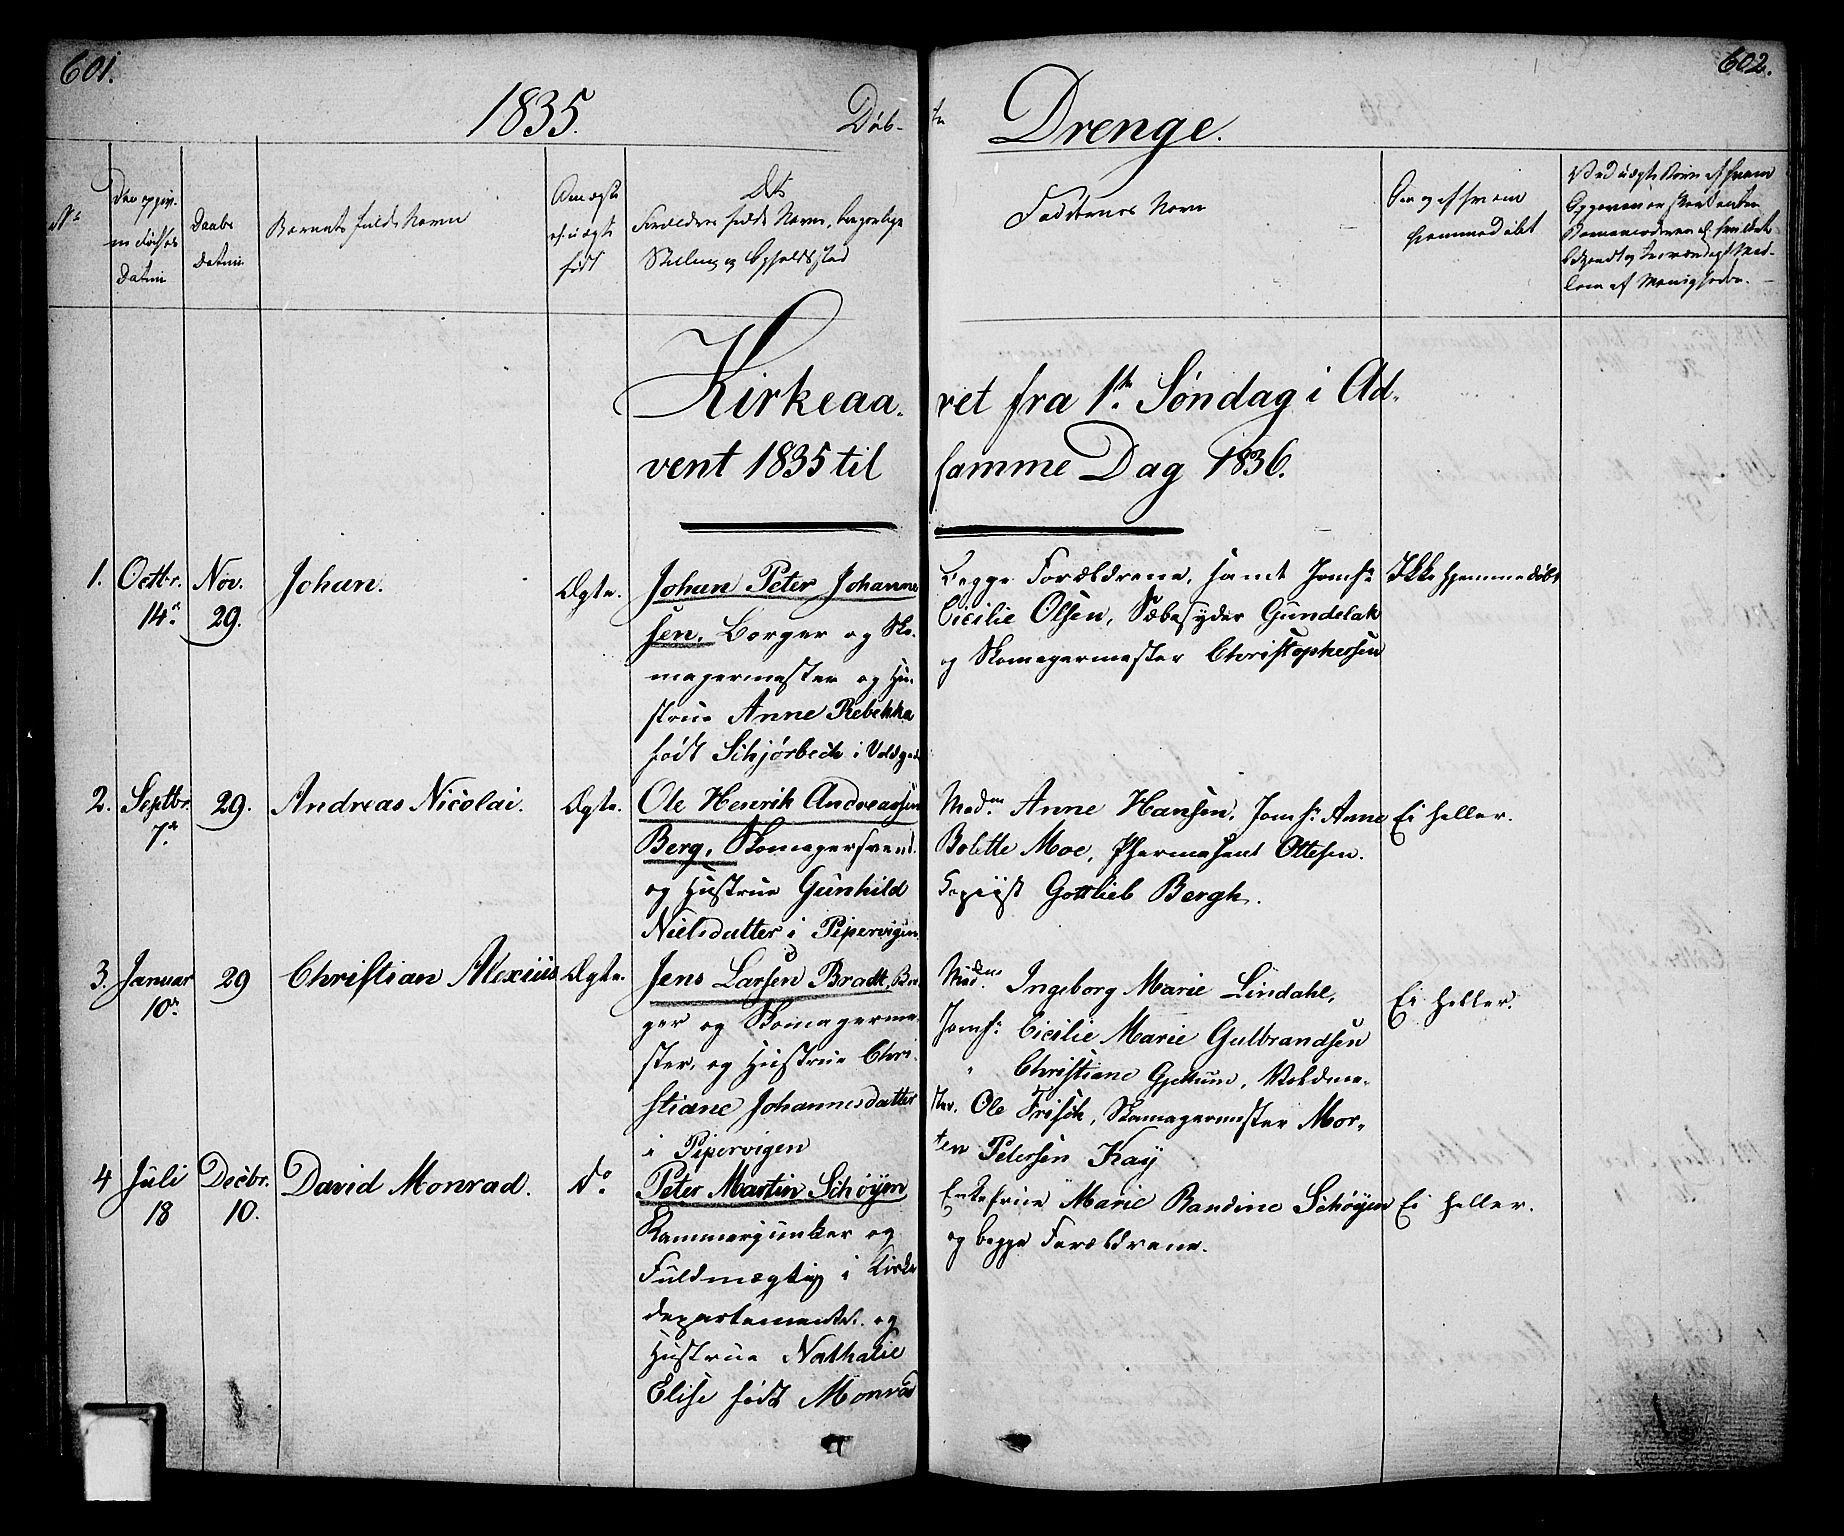 601.
602.
1835.
Døb-
te
Drenge.
No
Den opgiv-
ne Fødsels
Datum
Daabs
Datum
Barnets fulde Navn
Om ægte
el. uægte
født
Forældres fulde Navn, borgerlige
Stilling og Opholdssted
Faddernes Navn
Om og af hvem
hjemmedøbt
Ved uægte Børn af hvem
Kirkeaa-
ret fra 1ste Søndag i Ad-
vent 1835 til
samme Dag 1836.
1.
Octbr.
14de
Nov.
29.
Johan.
Ægte.
Johan Peter Johanne-
sen, Borger og Sko-
magermester og Hu-
strue Anne Rebekka
født Schjørbeck i Voldgad
Begge Forældrene, samt Jomfr
Cicilie Olsen, Sæbesyder Gundelak
og Skomagermester Christophersen
Ikke hjemmedøbt
2.
Septbr.
7de
29.
Andreas Nicolai.
Ægte.
Ole Henrik Andreassen
Berg, Skomagersvend
og Hustrue Gunhild
Nielsdatter i Pipervigen
Madm. Anne Hansen, Jomfr: Anne
Bolette Moe, Ottesen.
Copiist Gottlieb Bergh.
Ei heller.
3.
Januar
10de
29
Christian Alexius
Ægte.
Jens Larsen Bradt, Bor-
ger og Skomagerme-
ster, og Hustrue Chri-
stiane Johannesdatter
i Pipervigen
Madm. Ingeborg Marie Lindahl,
Jomfr: Cicilie Marie Gulbrandsen
" Christiane Gjettum, Voldme-
ster. Ole Frisch, Skomagermester Mor-
ten Petersen Kay
Ei heller.
4
Juli
18
Decbr.
10.
David Monrad.
do
Peter Martin Schøyen
Kammerjunker og
Fuldmægtig i Kirke
departementet. og
Hustrue Nathalie
Elise født Monrad
Enkefrue Marie Randine Schøyen
og begge Forældrene.
Ei heller.